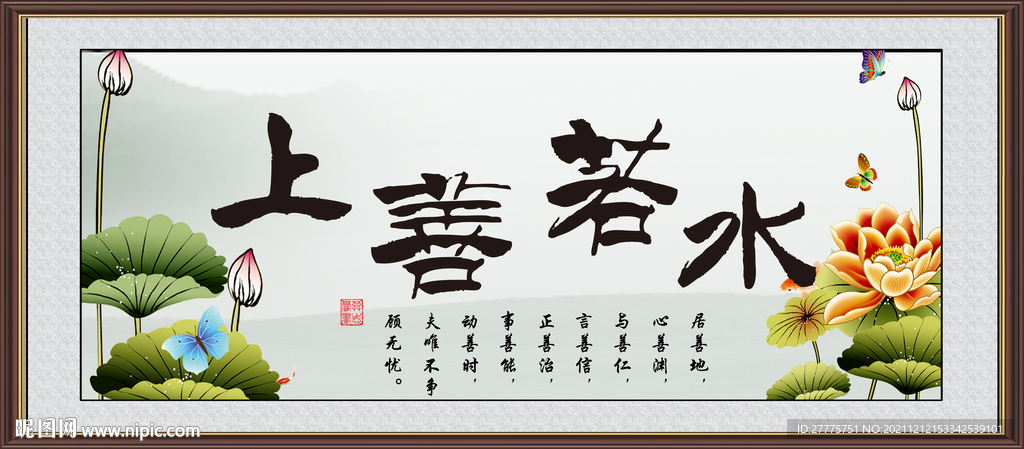 上善若水
居善地，
心善渊，
与善仁，
言善信，
正善治，
事善能，
动善时，
夫唯不争
顾无忧。
昵图网 www.nipic.com
ID:27775751 NO:20211212153342539101